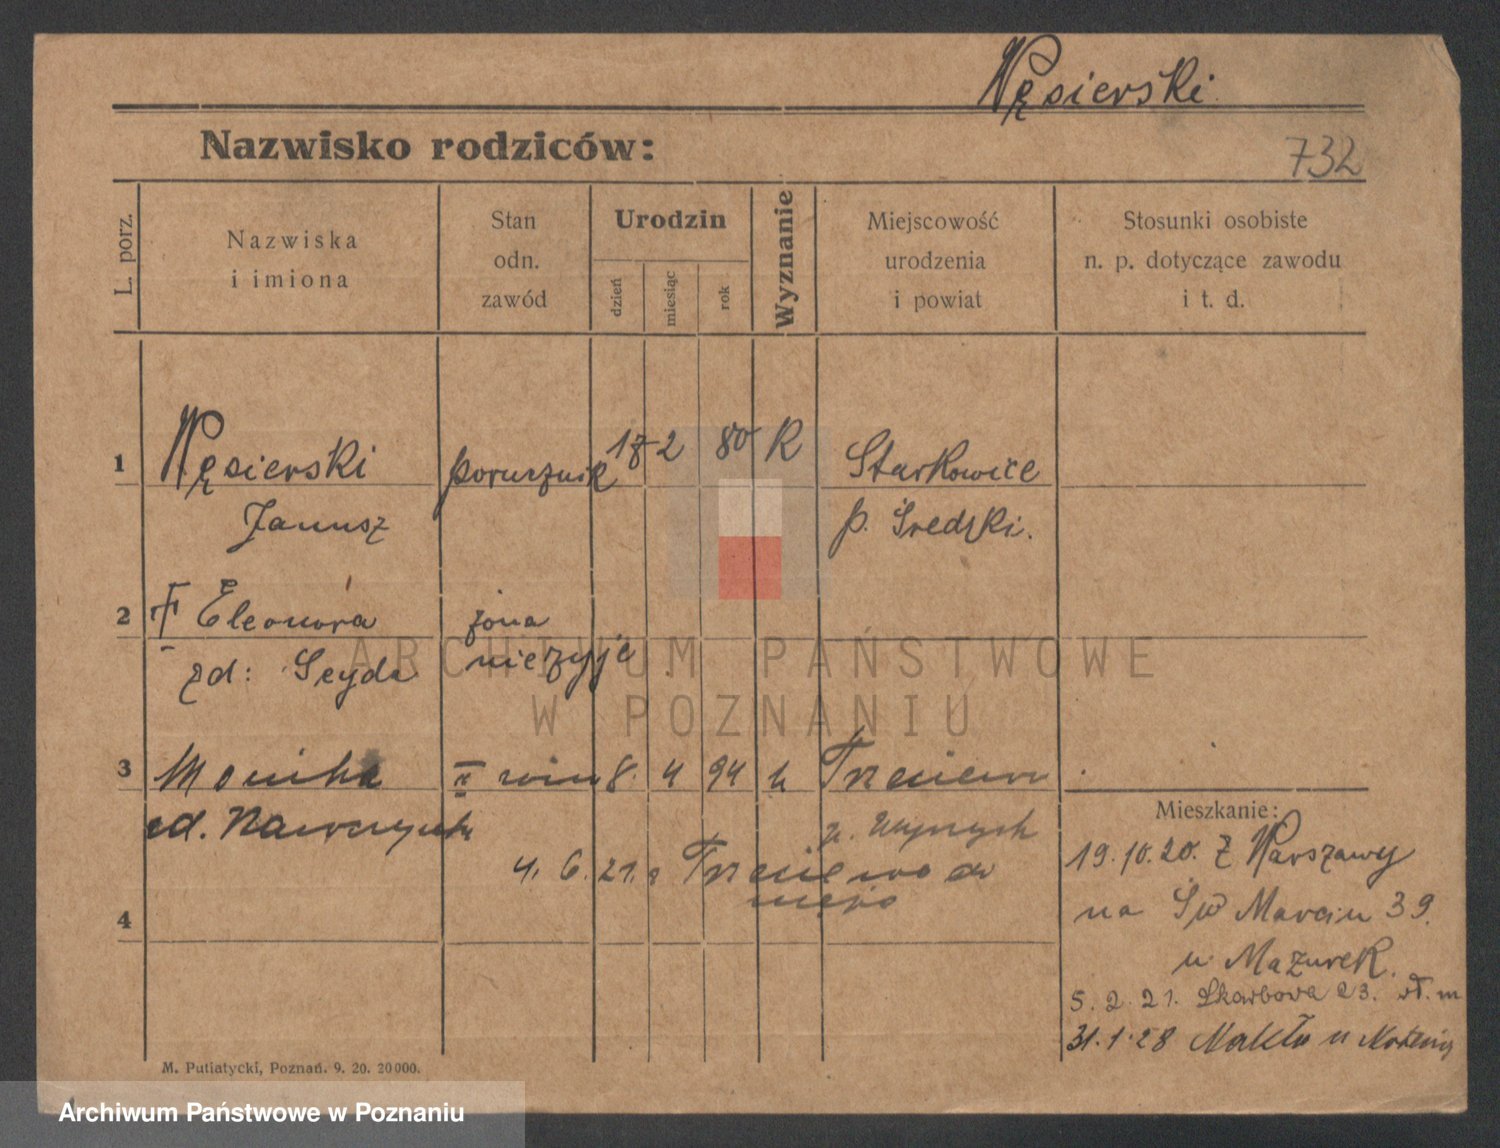 Węsierski
Nazwisko rodziców:
732
L. porz.
Nazwiska
i imiona
Stan
odn.
zawód
Urodzin
dzień
miesiąc
rok
Wyznanie
Miejscowość
urodzenia
i powiat
Stosunki osobiste
n. p. dotyczące zawodu
i t. d.
1 Węsierski porucznik 17 2 80 K Starkowice
Janusz p. Średzki.
2 Eleonora żona
zd: Seyda nieżyje
ARCHIWUM PAŃSTWOWE
W POZNANIU
3 Monika II 8. 4 94 k
Mieszkanie:
4. 6. 21.
męża
19.10.20. z Warszawy
na Św Marcin 39.
u Mazurek.
4
5. 2. 21. Skarbowa 23.
31.1.28 Nakło n Notecią
M. Putiatycki, Poznań. 9. 20. 20000.
Archiwum Państwowe w Poznaniu